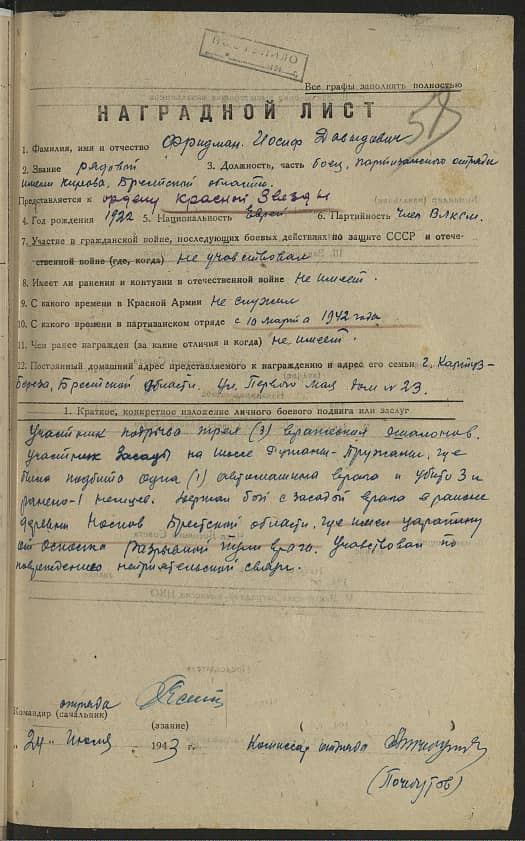 Все графы заполнять полностью
НАГРАДНОЙ ЛИСТ
1. Фамилия, имя и отчество Фридман Иосиф Давыдович
2. Звание рядовой 3. Должность, часть боец, партизанского отряда
имени Кирова, Брестской области.
Представляется к ордену Красной Звезды
4. Год рождения 1922 5. Национальность Еврей 6. Партийность Член ВЛКСМ.
7. Участие в гражданской войне, последующих боевых действиях по защите СССР и отече-
ственной войне (где, когда) не участвовал
8. Имеет ли ранения и контузии в отечественной войне не имеет.
9. С какого времени в Красной Армии не служил
10. С какого времени в партизанском отряде с 10 марта 1942 года
11. Чем ранее награжден (за какие отличия и когда) не имеет.
12. Постоянный домашний адрес представляемого к награждению и адрес его семьи г. Картуз-
Береза, Брестской области. Ул. Первого мая дом № 23.
1. Краткое, конкретное изложение личного боевого подвига или заслуг
Участник подрыва трех (3) вражеских эшалонов.
Участник засады на шоссе Пружани, где
была подбита одна (1) автомашина врага и убито 3 и
ранено-1 немцев. Держал бой с засадой врага в районе
деревни Брестской области, где имел царапину
от осколка разрывной пули врага. Участвовал по
повреждению неприятельской связи.
отряда
Командир (начальник)
(звание)
"24" Июля 1943 г. Комиссар отряда